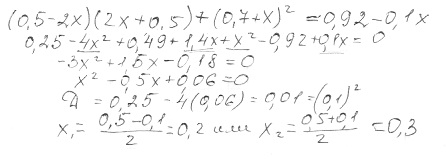 (0,5-2x)(2x+0,5)+(0,7+x)²=0,92-0,1x
0,25-4x²+0,49+1,4x+x²-0,92+0,1x=0
-3x²+1,5x-0,18=0
x²-0,5x+0,06=0
Д=0,25-4(0,06)=0,01=(0,1)²
x₁=(0,5-0,1)/2=0,2 или x₂=(0,5+0,1)/2=0,3